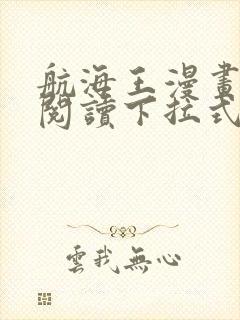 航海王漫畫
閱讀下拉式
雲我無心